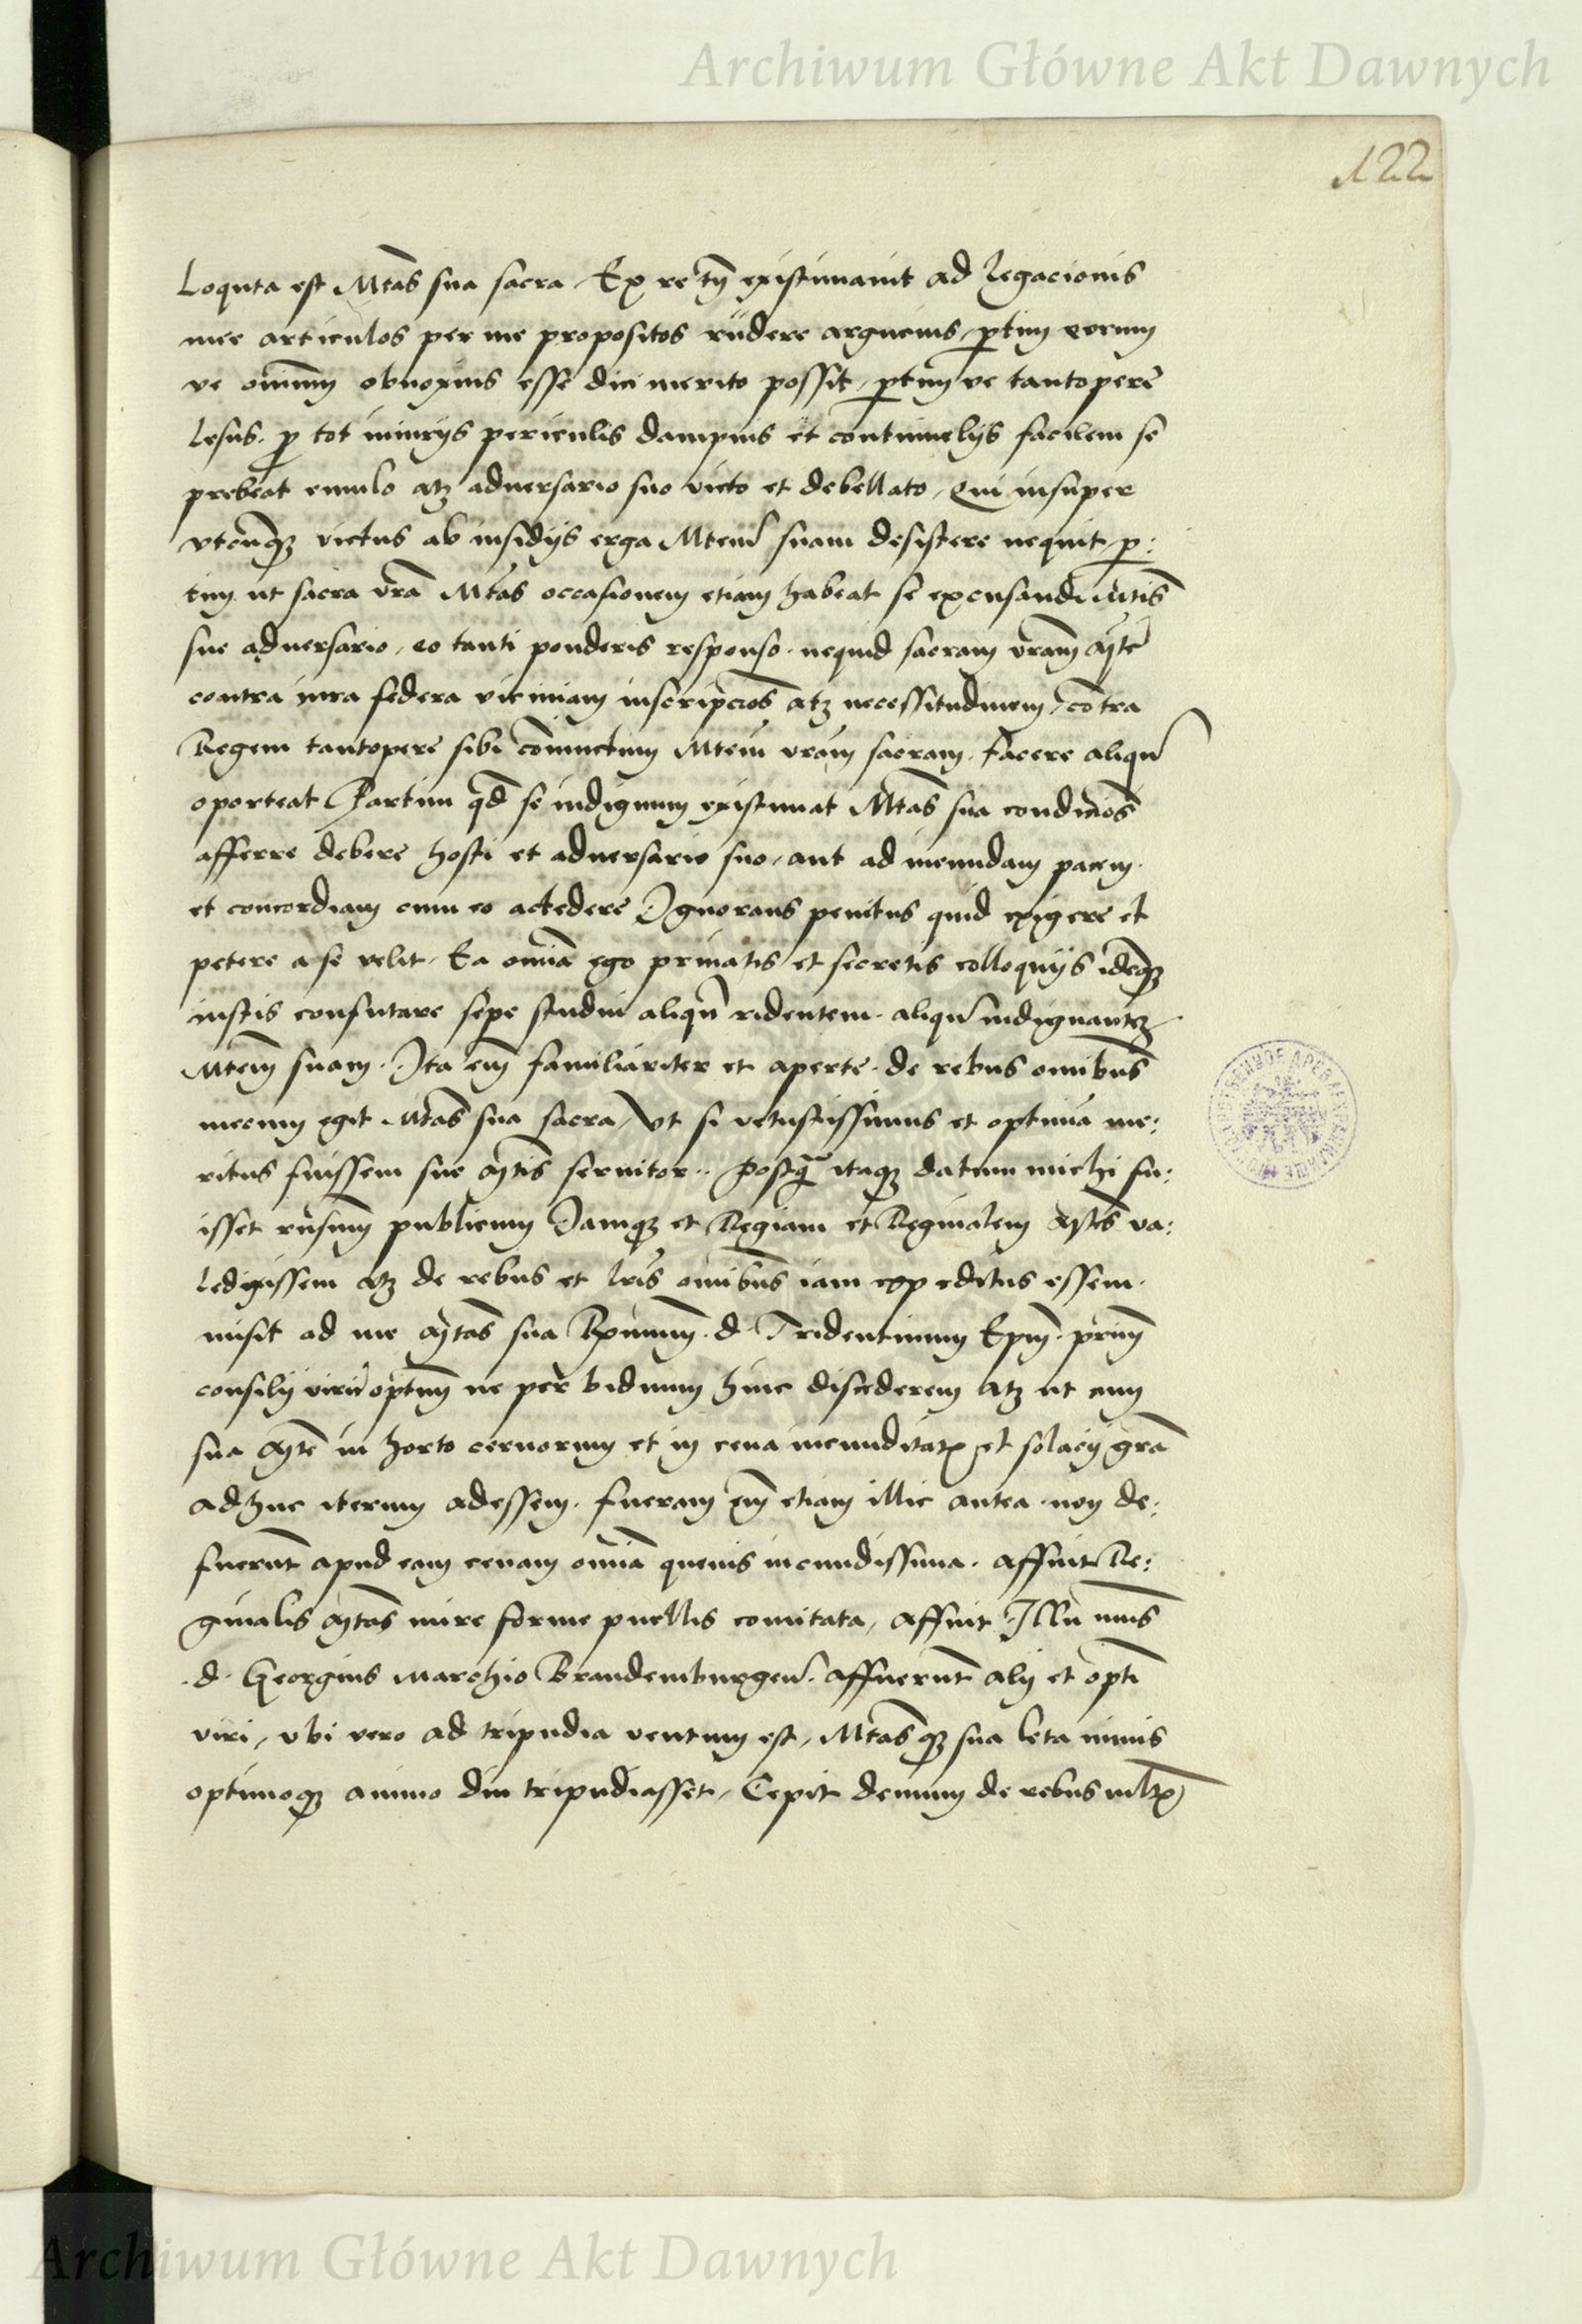 Archiwum Główne Akt Dawnych
122
Loquta est Mtas sua sacra Ex re tn existimauit ad legacionis
mee articulos per me propositos rudere argucius, ptim eorum
ve omnium obnoxius esse dici merito possit, ptim ve tantopere
lesus. p tot iniurijs periculis dampnis et contumelijs facilem se
prebeat emulo atz aduersario suo victo et debellato, Qui insuper
vtcunqz victus ab insidijs erga Mtem suam desistere nequit, p:
tim ut sacra vra Mtas occasionem etiam habeat se excusandi Mtis
sue aduersario, eo tanti ponderis responso. nequid sacram vram Mtem
contra iura federa viciniam inscripcios atz necessitudinem, contra
Regem tantopere sibi coniunctum Mtem vram sacram. facere aliqn
oporteat Partim qd se indignum existimat Mtas sua condicios
afferre debere hosti et aduersario suo, aut ad ineundam pacem.
et concordiam cum eo accedere Ignorans penitus quid exigere et
petere a se velit. Ea omia ego priuatis et secretis colloquijs idemqz
iustis confutare sepe studui aliqn ridentem. aliqn indignantez
Mtem suam. Ita em familiariter et aperte. de rebus omibus
mecum egit Mtas sua sacra, Vt si vetustissimus et optima me:
ritus fuissem sue Mtis seruitor.. Postq itaqz datum michi fu:
isset rnsum publicum Iamqz et Regiam et Reginalem Mtes va:
ledixissem atz de rebus et lris omibus iam expeditus essem.
misit ad me Mtas sua Rximum. d. Tridentinum Epm. prim
consilij viru optim ne per biduum hinc discederem atz ut cum
sua Mte in horto ceruorum et in cena iucunditatis et solacij gra
adhuc iterum adessem. fueram em etiam illic antea. non de:
fuerunt apud eam cenam omia queuis iucundissima. affuit Re:
ginalis Mtas mire forme puellis comitata, affuit Illu mus
.d. Georgius Marchio Brandemburgen. affuerunt alij et opti
viri, vbi vero ad tripudia ventum est, Mtasqz sua leta nimis
optimoqz animo diu tripudiasset, Cepit demum de rebus mltis
Archiwum Główne Akt Dawnych